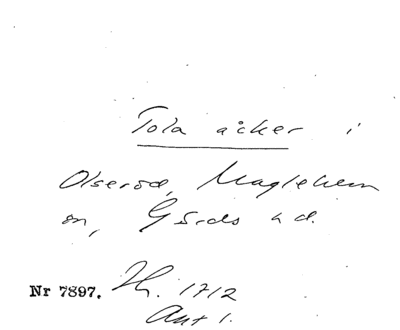 Tola åker i
Olseröd, Maglehem
sn, Gärds hd.
Nr 7897. Th. 1712
Akt 1.